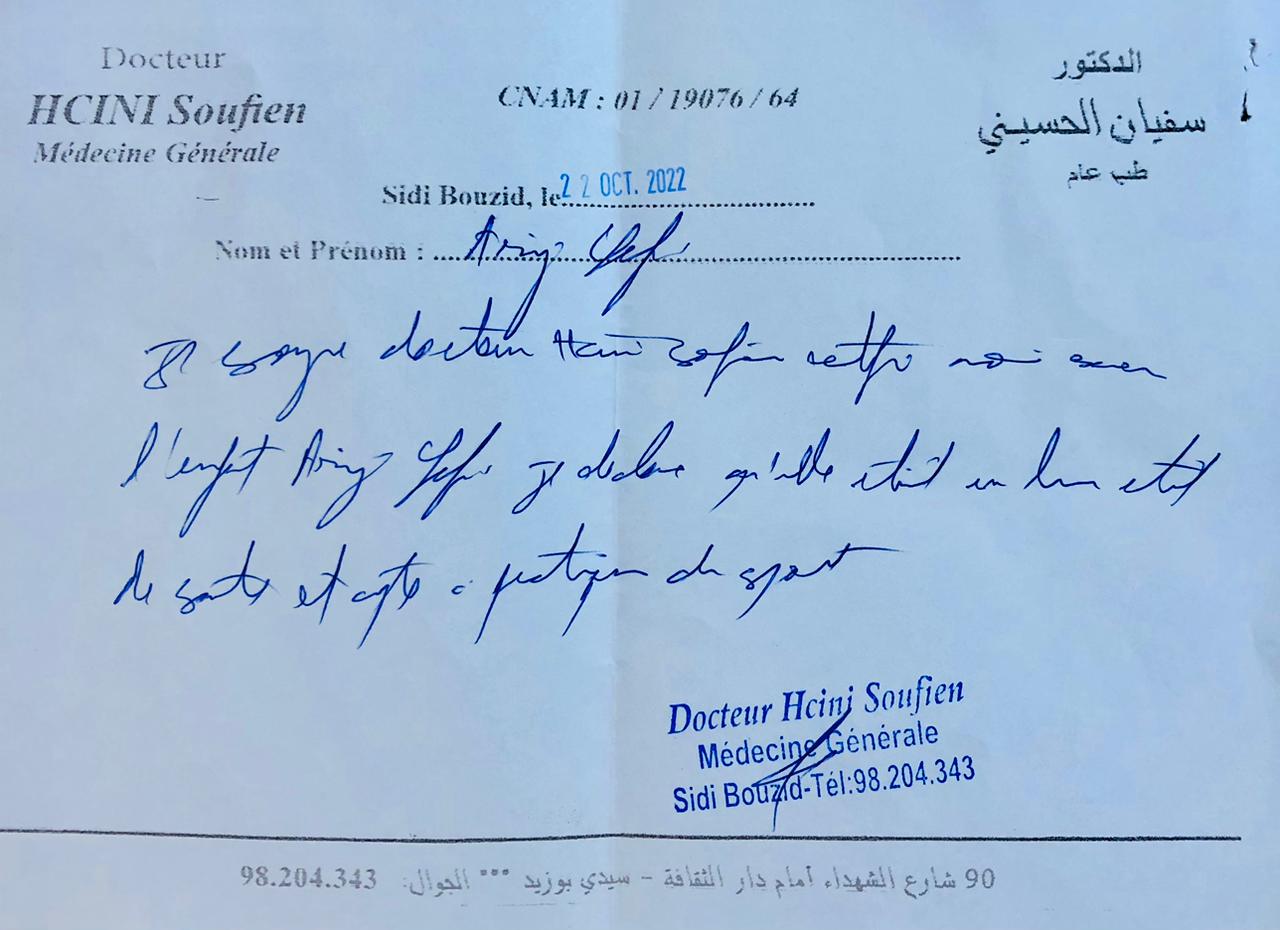 Docteur
HCINI Soufien
Médecine Générale
CNAM : 01 / 19076 / 64
الدكتور
سفيان الحسيني
طب عام
Sidi Bouzid, le 22 OCT. 2022
Nom et Prénom :
Je docteur Hcini
l'enfant je déclare qu'elle était en bon état
de santé et apte à pratiquer du sport
Docteur Hcini Soufien
Médecine Générale
Sidi Bouzid-Tél:98.204.343
90 شارع الشهداء أمام دار الثقافة - سيدي بوزيد *** الجوال: 98.204.343